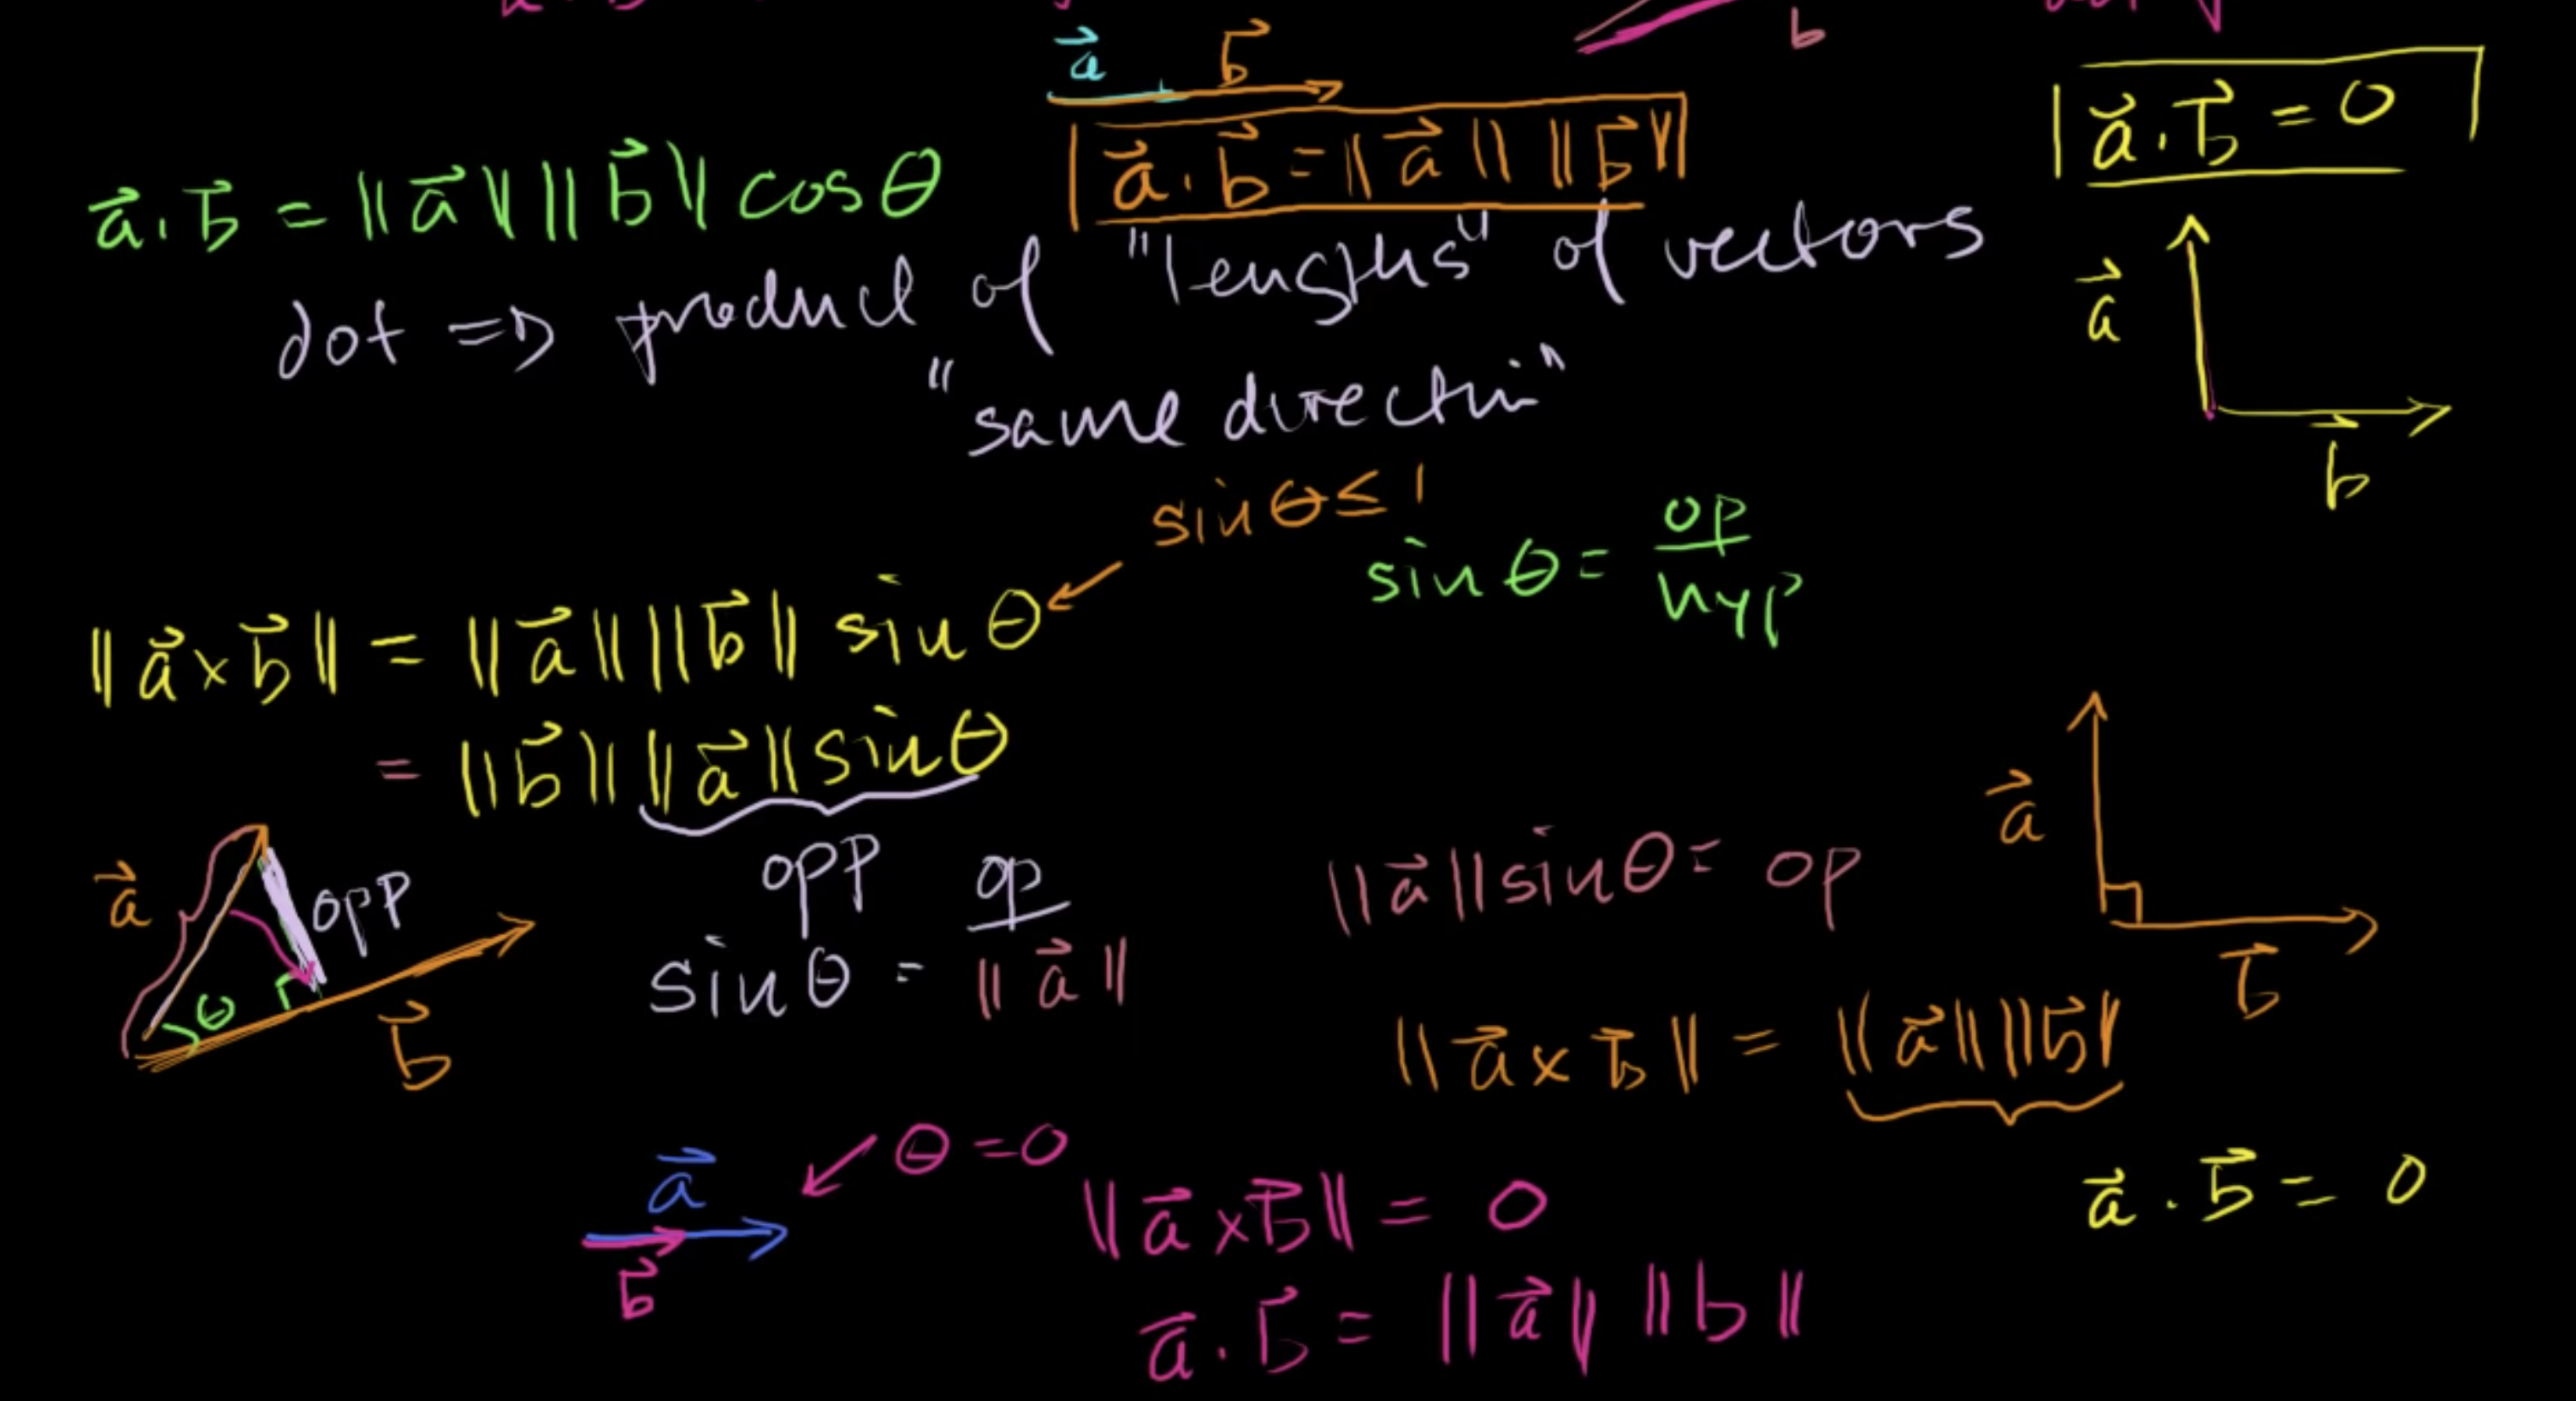 b
a⃗ b⃗
|a⃗ · b⃗ = 0
a⃗ · b⃗ = ‖a⃗‖ ‖b⃗‖ cos θ
a⃗ · b⃗ = ‖a⃗‖ ‖b⃗‖
dot ⇒ product of "lengths" of vectors
"same direction"
a⃗
b⃗
sin θ ≤ 1
sin θ = op/hyp
‖a⃗ × b⃗‖ = ‖a⃗‖ ‖b⃗‖ sin θ
= ‖b⃗‖ ‖a⃗‖ sin θ
opp
a⃗ opp
θ b⃗
sin θ = op/‖a⃗‖
‖a⃗‖ sin θ = op
a⃗
b⃗
‖a⃗ × b⃗‖ = ‖a⃗‖ ‖b⃗‖
a⃗ · b⃗ = 0
a⃗ θ = 0
b⃗
‖a⃗ × b⃗‖ = 0
a⃗ · b⃗ = ‖a⃗‖ ‖b‖